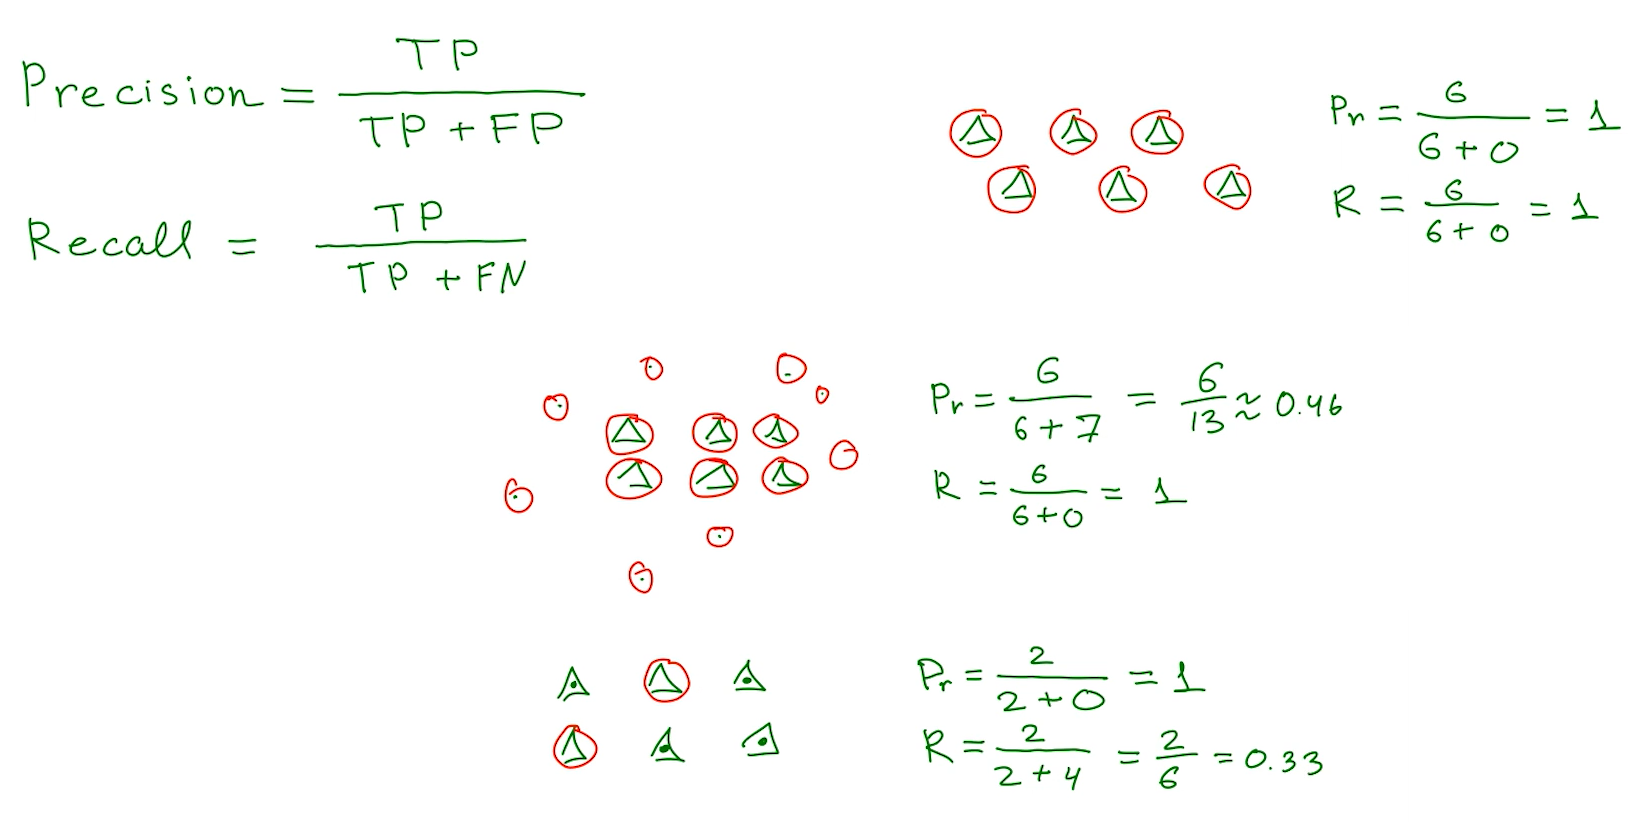 Precision = TP / TP + FP
Recall = TP / TP + FN
Pr = 6 / 6 + 0 = 1
R = 6 / 6 + 0 = 1
Pr = 6 / 6 + 7 = 6 / 13 ≈ 0.46
R = 6 / 6 + 0 = 1
Pr = 2 / 2 + 0 = 1
R = 2 / 2 + 4 = 2 / 6 = 0.33